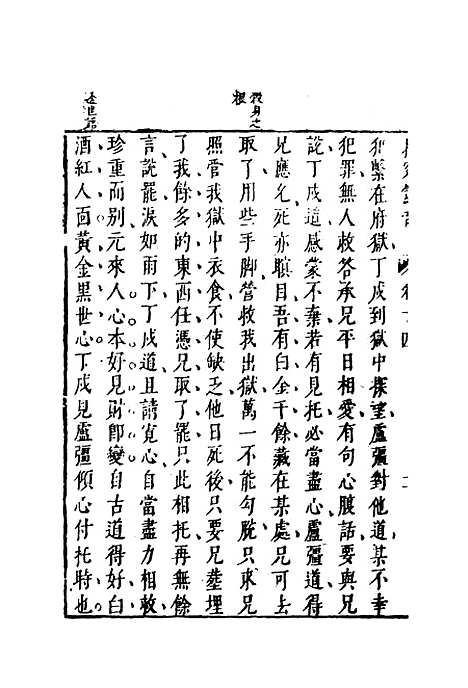 拍案驚奇 卷十四
犯繫在府獄丁戍到獄中探望盧彊對他道某不幸
犯罪無人救荅承兄平日相愛有句心腹話要與兄
說丁戍道感蒙不棄若有見托必當盡心盧彊道得
兄應允死亦瞑目吾有白金千餘藏在某處兄可去
取了用些手脚營救我出獄萬一不能勾脫只求兄
照管我獄中衣食不使缺乏他日死後只要兄塟埋
了我餘多的東西任憑兄取了罷只此相托再無餘
言說罷淚如雨下丁戍道且請寬心自當盡力相救
珍重而別元來人心本好見財卽變自古道得好白
酒紅人面黃金黑世心丁戍見盧彊傾心付托時也
殺身之根